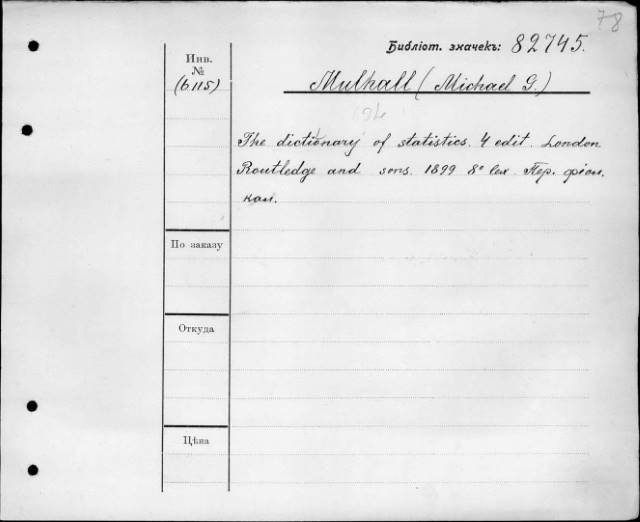 78
Библіот. значекъ: 82745.
Инв.
№
(6115)
Mulhall (Michael G.)
The dictionary of statistics. 4 edit. London
Routledge and sons. 1899 8° lex. Пер. фіол.
кал.
По заказу
Откуда
Цѣна